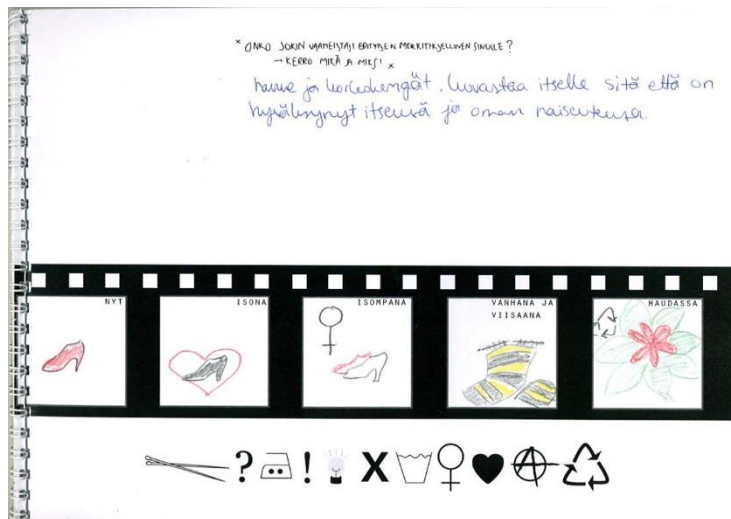 * ONKO JOKIN VAATEISTASI ERITYISEN MERKITYKSELLINEN SINULLE?
→ KERRO MIKÄ JA MIKSI *
hame ja korkokengät. kuvastaa itselle sitä että on
hyväksynyt itsensä ja oman naiseutensa.
NYT
ISONA
ISOMPANA
VANHANA JA
VIISAANA
HAUDASSA
? ! X